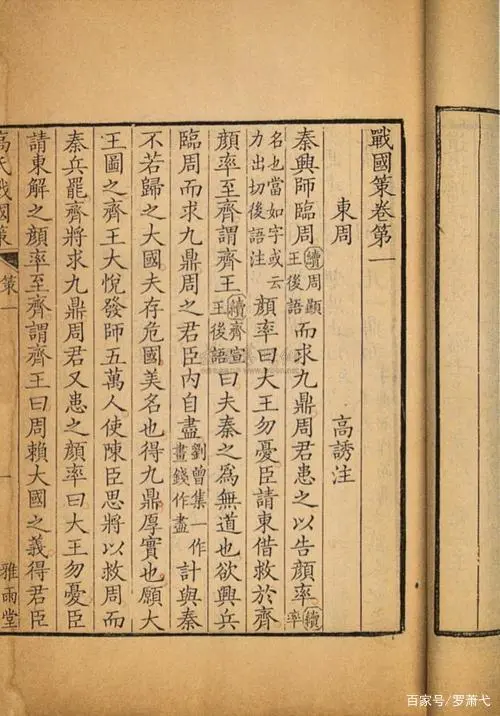 戰國策卷第一
東周 高誘注
秦興師臨周續周顯王後語而求九鼎周君患之以告顔率續率
名也當如字或云力出切後語注顔率曰大王勿憂臣請東借救於齊
顔率至齊謂齊王續齊宣王後語曰夫秦之爲無道也欲興兵
臨周而求九鼎周之君臣内自盡劉曾集一作畫錢作盡計與秦
不若歸之大國夫存危國美名也得九鼎厚實也願大
王圖之齊王大悅發師五萬人使陳臣思將以救周而
秦兵罷齊將求九鼎周君又患之顔率曰大王勿憂臣
請東解之顔率至齊謂齊王曰周賴大國之義得君臣
高氏戰國策 策一 一 雅雨堂
百家号/罗萧弋